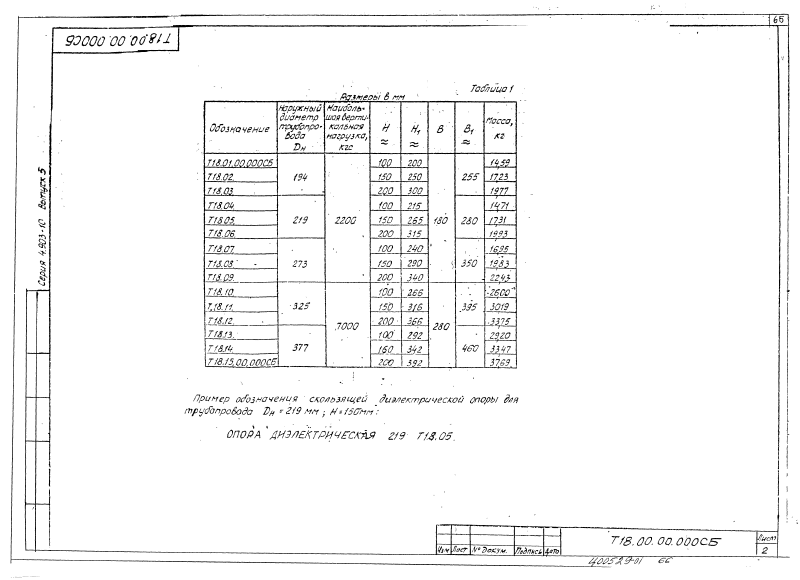 65
Т18.00.00.000СБ
Серия 4.903-10 Выпуск 5
Таблица 1
Размеры в мм
Обозначение | Наружный диаметр трубопровода Dн | Наибольшая вертикальная нагрузка, кгс | H ≈ | H₁ ≈ | B | B₁ ≈ | Масса, кг
Т18.01.00.000СБ | 194 | 2200 | 100 | 200 | 180 | 255 | 14,59
Т18.02. | 150 | 250 | 17,23
Т18.03. | 200 | 300 | 19,77
Т18.04. | 219 | 100 | 215 | 280 | 14,71
Т18.05. | 150 | 265 | 17,31
Т18.06. | 200 | 315 | 19,93
Т18.07. | 273 | 100 | 240 | 350 | 16,95
Т18.08. | 150 | 290 | 19,83
Т18.09. | 200 | 340 | 22,43
Т18.10. | 325 | 7000 | 100 | 266 | 280 | 395 | 26,00
Т.18.11. | 150 | 316 | 30,19
Т18.12. | 200 | 366 | 33,75
Т18.13. | 377 | 100 | 292 | 460 | 29,20
Т18.14. | 150 | 342 | 33,47
Т18.15.00.000СБ | 200 | 392 | 37,69
Пример обозначения скользящей диэлектрической опоры для
трубопровода Dн = 219 мм; H = 150мм:
ОПОРА ДИЭЛЕКТРИЧЕСКАЯ 219 Т18.05.
Изм Лист № Докум. Подпись Дата
Т18.00.00.000СБ
Лист
2
Ц00529-01 66